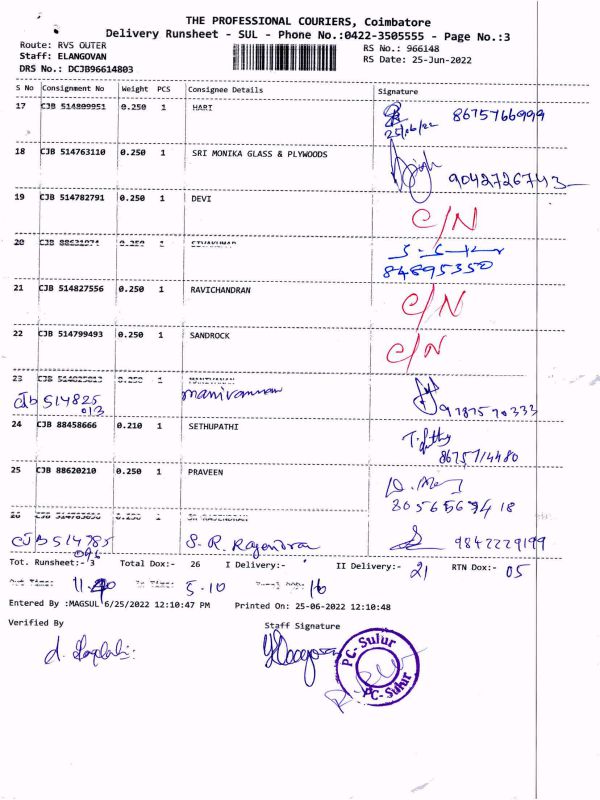 THE PROFESSIONAL COURIERS, Coimbatore
Delivery Runsheet - SUL - Phone No.:0422-3505555 - Page No.:3
Route: RVS OUTER
RS No.: 966148
Staff: ELANGOVAN
RS Date: 25-Jun-2022
DRS No.: DCJB96614803
S No Consignment No Weight PCS Consignee Details Signature
17 CJB 514809951 0.250 1 HARI 8675766999
25/06/22
18 CJB 514763110 0.250 1 SRI MONIKA GLASS & PLYWOODS
9042726743
19 CJB 514782791 0.250 1 DEVI C/N
20 CJB 88621074 0.250 1 SIVAKUMAR
84895350
21 CJB 514827556 0.250 1 RAVICHANDRAN C/N
22 CJB 514799493 0.250 1 SANDROCK C/N
23 CJB 514825013 0.250 1 MANIVANAN
CJB 514825 013 manivannan 9787570333
24 CJB 88458666 0.210 1 SETHUPATHI
8675714480
25 CJB 88620210 0.250 1 PRAVEEN
8056569418
26 CJB 0.250 1 SR RAJENDRAN
CJB 514785 096 S. R. Rajendran 9842229199
Tot. Runsheet:- 3 Total Dox:- 26 I Delivery:- II Delivery:- 21 RTN Dox:- 05
Out Time: 11.40 In Time: 5.10 16
Entered By :MAGSUL 6/25/2022 12:10:47 PM Printed On: 25-06-2022 12:10:48
Verified By Staff Signature
PC- Sulur
PC- Sulur